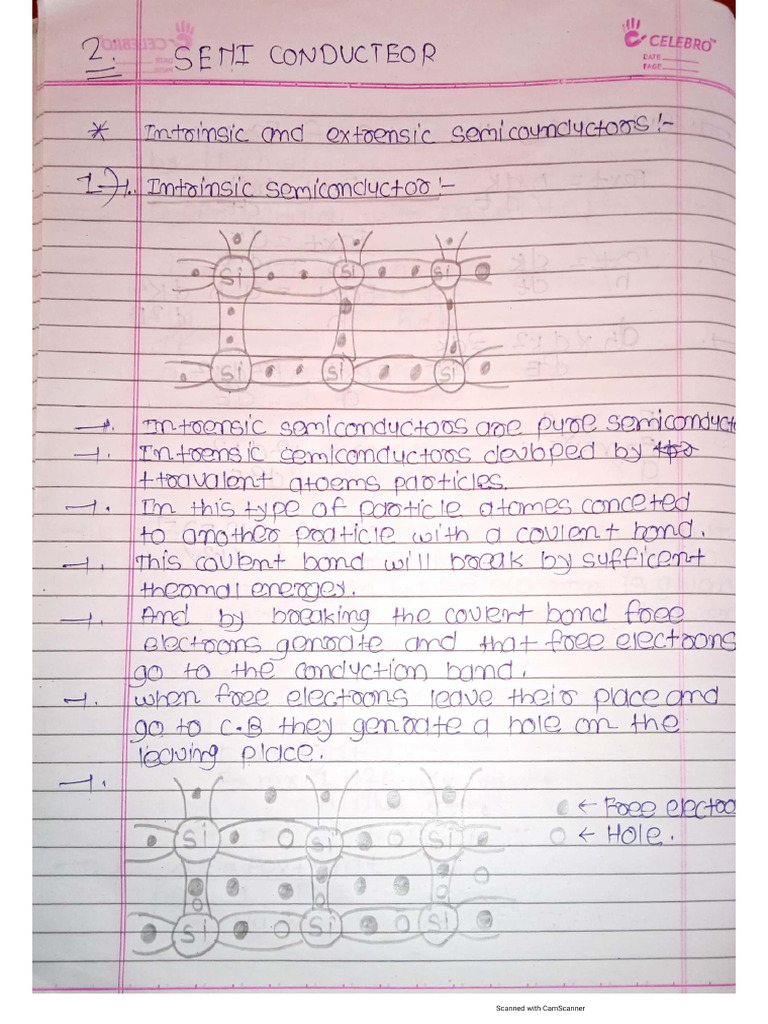 CELEBRO™
DATE
PAGE
2. SEMI CONDUCTEOR
* Intrinsic and extrensic semicounductors:-
1.→1. Intrinsic semiconductor:-
Si Si Si
Si Si Si
→1. Intrensic semiconductors are pure semiconducto
→1. Intrensic semiconductors devloped by
ttravalent atoems particles.
→1. In this type of particle atomes conceted
to another praticle with a covlent bond.
→1. This covlent bond will break by sufficent
thermal energey.
→1. And by breaking the covlent bond free
electrons genrate and that free electrons
go to the conduction band.
→1. When free electrons leave their place and
go to C.B they genrate a hole on the
leaving place.
→1.
← Free electro
Si Si Si ← Hole.
Si Si Si
Scanned with CamScanner